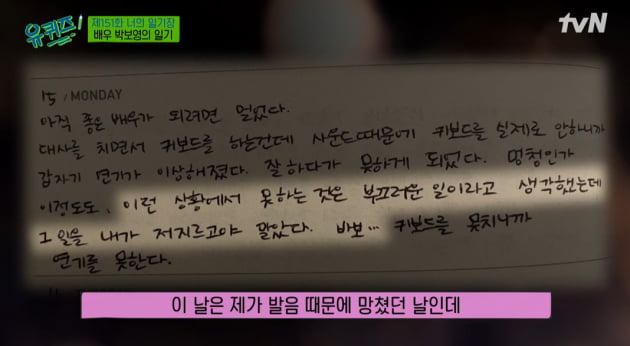 유퀴즈!
제151화 너의 일기장
배우 박보영의 일기
tvN
15 / MONDAY
아직 좋은 배우가 되려면 멀었다.
대사를 치면서 키보드를 하는건데 사운드때문에 키보드를 실제로 안하니까
갑자기 연기가 이상해졌다. 잘하다가 못하게 되었다. 멍청인가
이정도도, 이런 상황에서 못하는 것은 부끄러운 일이라고 생각했는데
그 일을 내가 저지르고야 말았다. 바보... 키보드를 못치니까
연기를 못한다.
이 날은 제가 발음 때문에 망쳤던 날인데